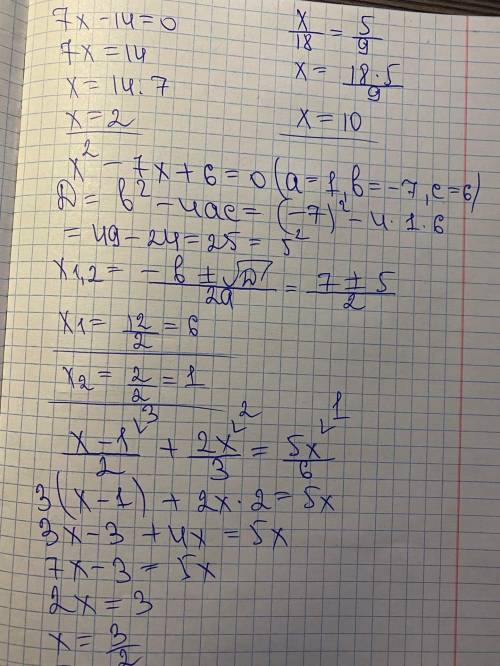 7x-14=0
7x=14
x=14·7
x=2
x/18 = 5/9
x= 18·5/9
x=10
x²-7x+6=0 (a=1, в=-7, c=6)
D= в²-4ac= (-7)²-4·1·6
=49-24=25=5²
x1,2= -в±√D/2a = 7±5/2
x1= 12/2 =6
x2= 2/2 =1
3 2 1
x-1/2 + 2x/3 = 5x/6
3(x-1)+2x·2=5x
3x-3+4x=5x
7x-3=5x
2x=3
x= 3/2